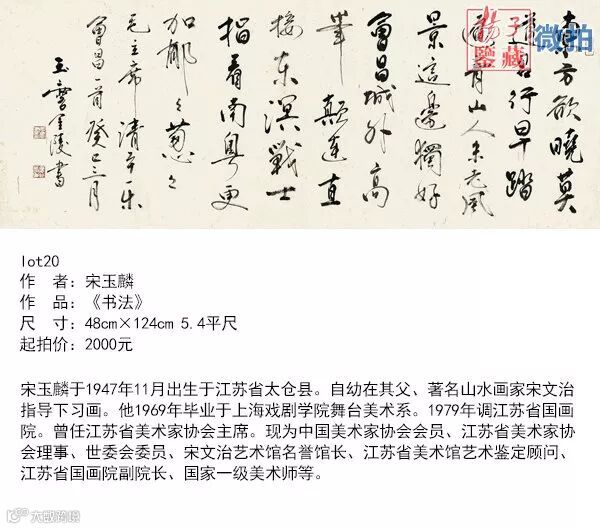 東方欲曉莫
道君行早踏
遍青山人未老風
景這邊獨好
會昌城外高
峯顛連直
接東溟戰士
指看南粤更
加郁々葱々
毛主席清平乐
會昌一首癸巳三月
玉麐金陵書
扬子
鉴藏
微拍
lot20
作 者：宋玉麟
作 品：《书法》
尺 寸：48cm×124cm 5.4平尺
起拍价：2000元
宋玉麟于1947年11月出生于江苏省太仓县。自幼在其父、著名山水画家宋文治
指导下习画。他1969年毕业于上海戏剧学院舞台美术系。1979年调江苏省国画
院。曾任江苏省美术家协会主席。现为中国美术家协会会员、江苏省美术家协
会理事、世委会委员、宋文治艺术馆名誉馆长、江苏省美术馆艺术鉴定顾问、
江苏省国画院副院长、国家一级美术师等。
大数跨境